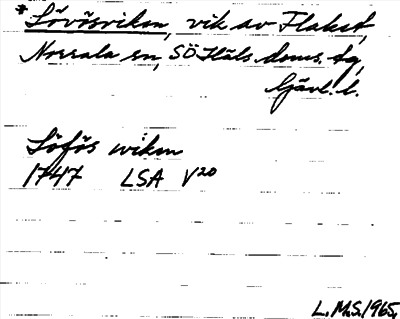 *Lövösviken, vik av Flaket,
Norrala sn, SÖ Häls. doms. tg,
Gävl. l.
Löfös wiken
1747 LSA V20
L.M.S. 1965.